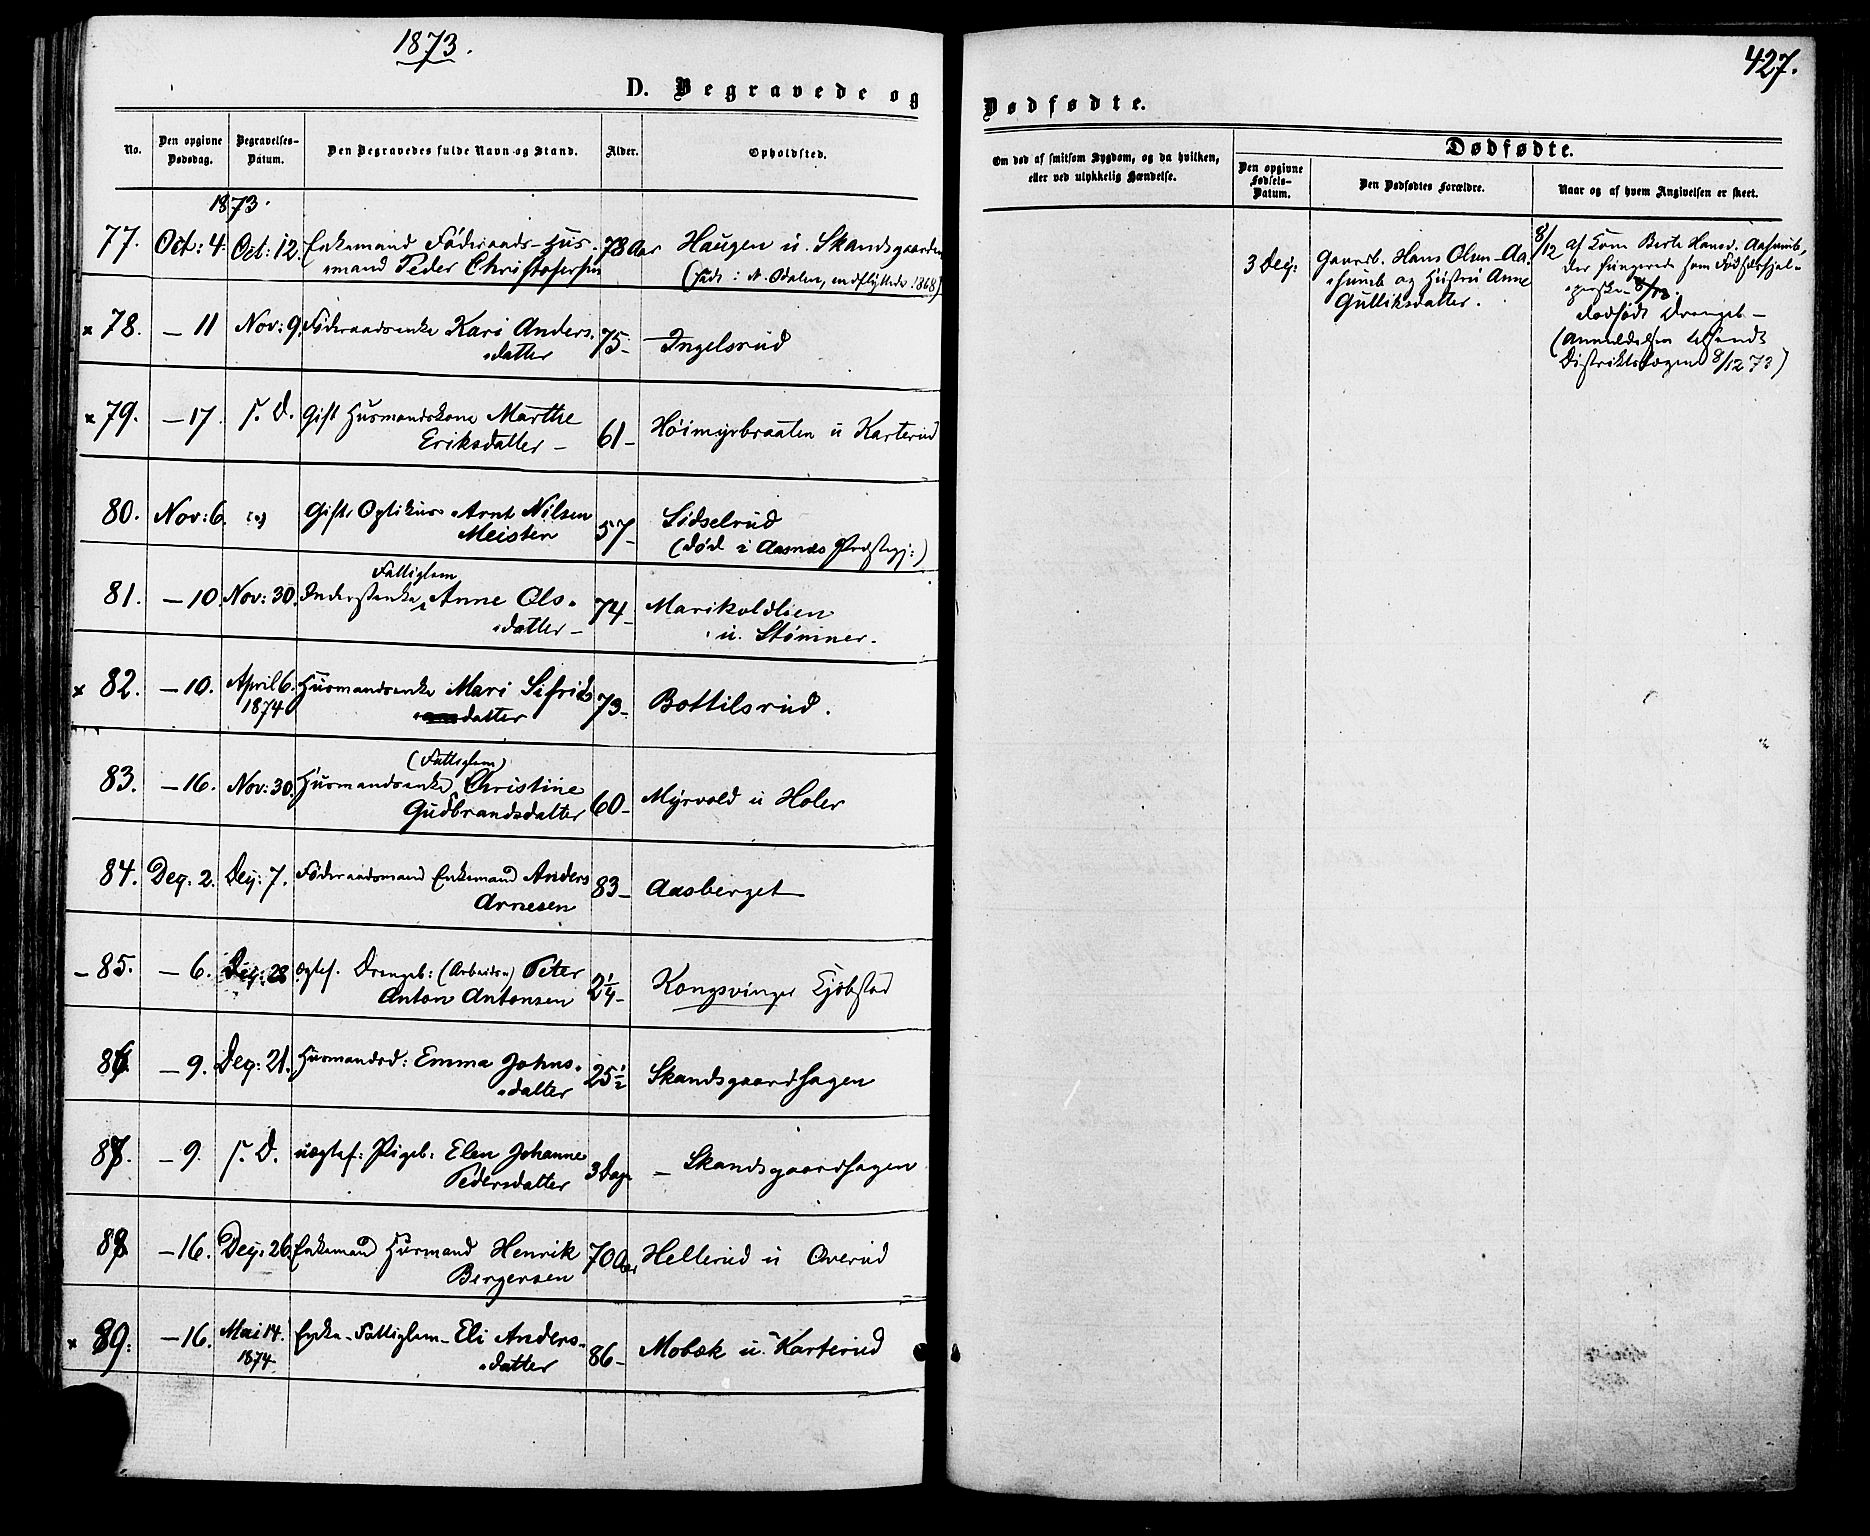 1873.
427.
D. Begravede og
Dødfødte.
No.
Den opgivne Dødsdag.
Begravelses-Datum.
Den Begravedes fulde Navn og Stand.
Alder.
Opholdsted.
Om død af smitsom Sygdom, og da hvilken,
eller ved ulykkelig Hændelse.
Dødfødte.
Den opgivne Fødsels-Datum.
Den Dødfødtes Forældre.
Naar og af hvem Angivelsen er skeet.
1873.
77. Oct: 4. Oct: 12. Enkemand Föderaads-Hus- 78 Aar Haugen u. Skandsgaarden
mand Peder Christofersen (født i N. Odalen, indflyttede 1868)
x 78. — 11 Nov: 9. Föderaadsenke Kari Anders- 75- Ingelsrud
datter
x 79. — 17. s. D. Gift Husmandskone Marthe 61- Höimyrbraaten u Karterud
Eriksdatter —
80. Nov: 6. Gift Optikus Arnt Nilsen 57- Sidselrud
Meister (død i Aasnes Præstegj:)
Fattiglem
81. — 10. Nov: 30. Inderstenke Anne Ols- 74- Marikoldlien
datter — u. Stömner.
x 82. — 10. April 6. Husmandsenke Mari Sifrids 73- Bottilsrud.
1874 datter
(Fattiglem)
83. — 16. Nov: 30. Husmandsenke Christine 60- Myrvold u Holer
Gudbrandsdatter
84. Dec: 2. Dec: 7. Föderaadsmand Enkemand Anders 83- Aasberget
Arnesen
— 85. — 6. Dec: 28 ægtef. Drengeb: (Arbeider) Peter 2 1/4- Kongsvinger Kjöbstad
Anton Antonsen
86. — 9. Dec: 21. Husmandsd: Emma Johns- 25 1/2 Skandsgaardhagen
datter
87. — 9. s. D. uægtef: Pigeb: Elen Johanne 3 Dage — Skandsgaardhagen
Pedersdatter
88 — 16. Dec: 26 Enkemand Husmand Henrik 70 Aar Hellerud u Overud
Bergersen
x 89. — 16. Mai 14. Enke — Fattiglem — Eli Anders- 86- Mobæk u. Karterud
1874. datter
3 Dec: Gaardb. Hans Olsen Aa-
sumb og Hustru Anne
Gulliksdatter.
8/12 af Kone Berte Hansd. Aasumb,
der fungerede som Fødselshjel-
8/12.
dødfødt Drengeb —
(Anmeldelsen tilsendt
Distriktslægen 8/12 73)